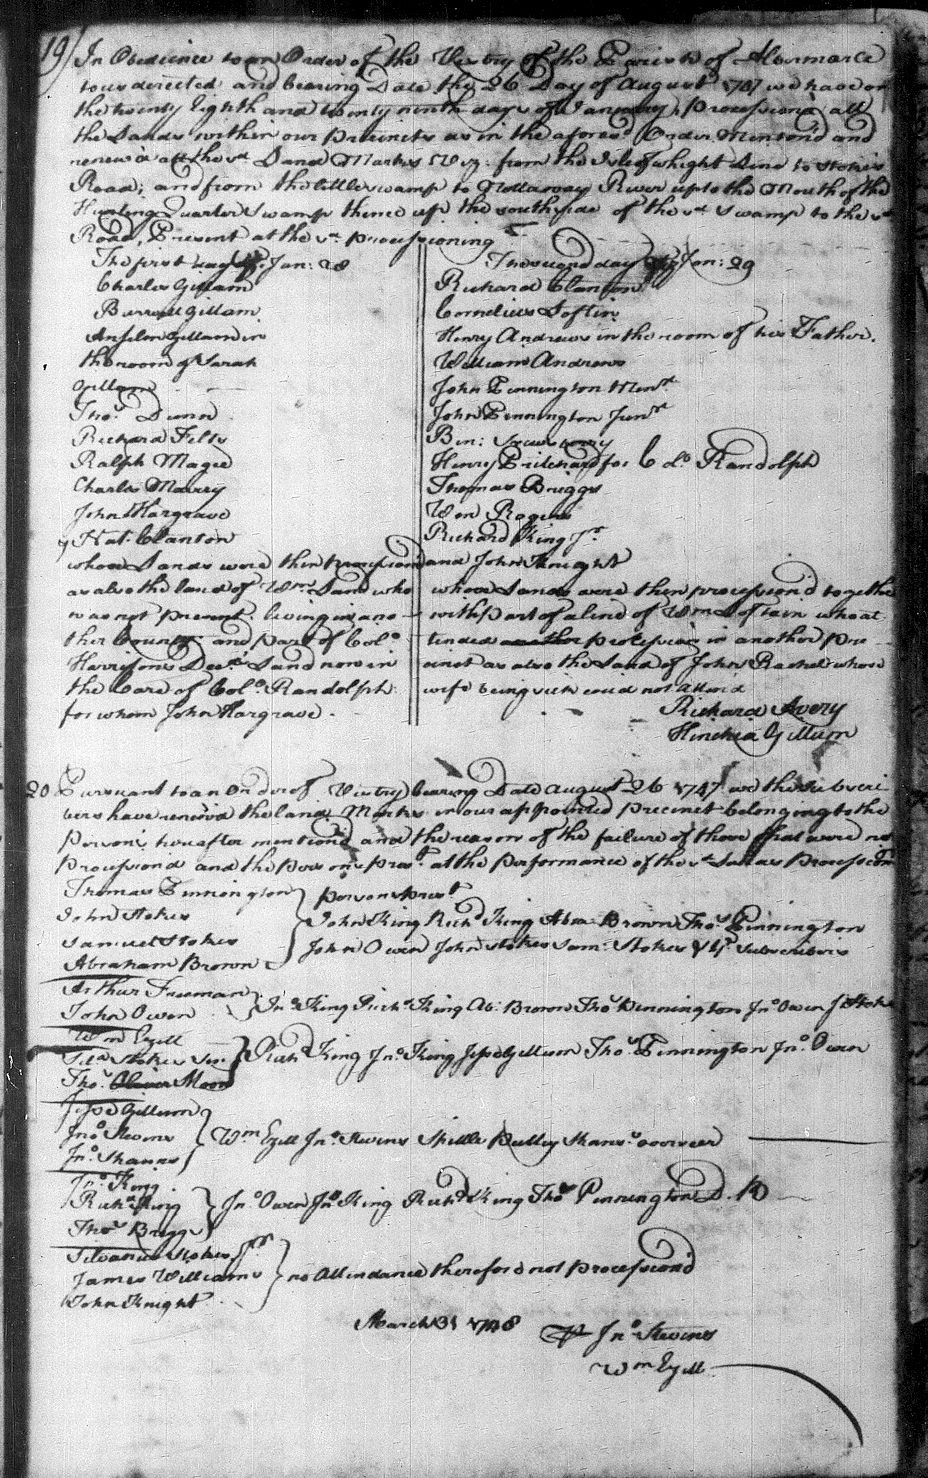 19) In Obedience to an Order of the Vestry of the Parish of Albemarle
to us directed and bearing Date the 26 Day of August 1747 we have on
the twenty Eighth and twenty ninth days of January, processiond all
the Lands within our precincts as in the aforesd Order Mention'd and
renew'd all the sd Land Markes Viz: from the Isle of whight Line to Stokes
Road; and from the little swamp to Nottaway River up to the Mouth of the
Hunting Quarter Swamp thence up the south side of the sd Swamp to the sd
Road, Present at the sd processioning
The first day Jan: 28
Charles Gillam
Burrell Gillam
Anselm Gillam in
the room of Sarah
Gillam
Thos Dunn
Richard Felts
Ralph Magee
Charles Marry
John Hargrave
Nat: Clanton
whose Lands were then procession'd
as also the land of Wm Land who
was not present living in ano-
ther County and part of Colo
Harrisons Decd Land now in
the Care of Colo Randolph
for whom John Hargrave
The second day Jan: 29
Richard Clanton
Cornelius Loftin
Henry Andrews in the room of his Father.
William Andrews
John Pinnington Minr
John Pinnington Junr
Bin:
Henry Pritchard for Colo Randolph
Thomas Briggs
Wm Rogers
Richard King Jr
and John Knight
whose Lands were then procession'd together
with part of a line of Wm Loftain who at-
tended procession in another pre-
cinct as also the Land of John Rachel whose
wife being sick could not attend
Richard Avery
Hinchia Gillum
20 Pursuant to an Order of Vestry bearing Date August 26 1747 we the subscri-
bers have renew'd the land Markes in our appointed precinct belonging to the
persons hereafter mentiond and the reason of the failure of those that were not
Processiond and the persons prest at the performance of the sd Landes Procession
Thomas Pinnington
John Stokes
Samuel Stokes
Abraham Brown
persons prest
John King Richd King Abra: Brown Thos Pinnington
John Owen John Stokes Sam: Stokes & ye Subscribers
Arthur Freeman
John Owen
Jno King Richd King Ab: Brown Thos Pinnington Jno Owen J Stokes
Wm Ezell
Silvs Stokes Senr
Thos Moore
Richd King Jno King Jesse Gillum Thos Pinnington Jno Owen
Jesse Gillum
Jno Stevens
Jno Shands
Wm Ezell Jno Stevens Shands overseer
Jno King
Richd King
Thos Briggs
Jno Owen Jno King Richd King Thos Pinnington
Silvanus Stokes Jr
James Williams
John Knight
no Attendance therefore not processiond
March 31 1748
Jno Stevens
Wm Ezell